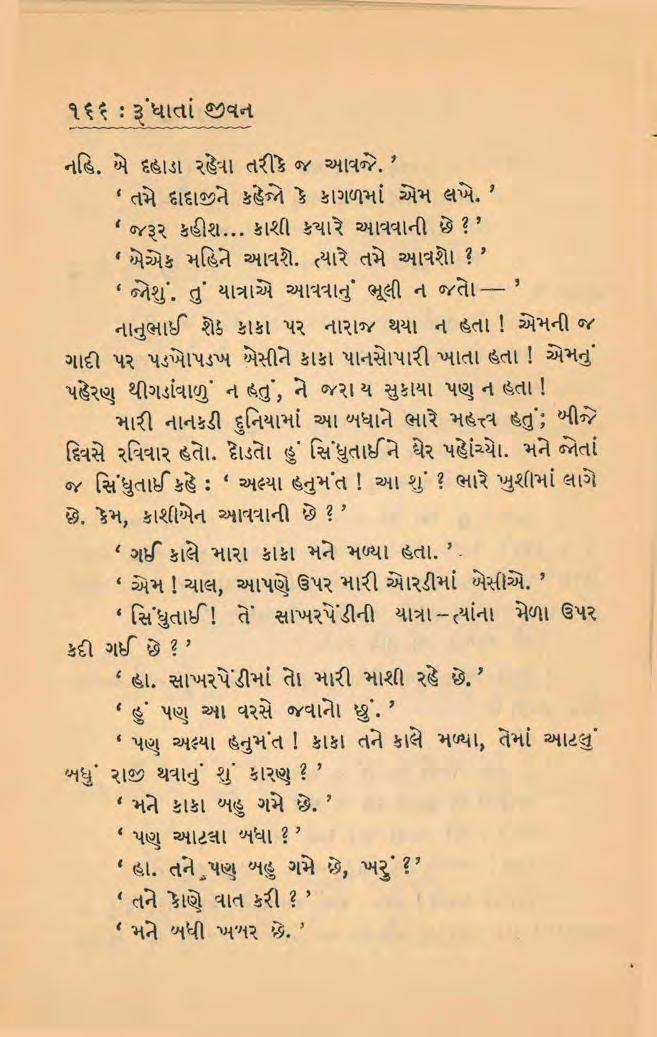 ૧૬૬ : રૂંધાતાં જીવન
નહિ. બે દહાડા રહેવા તરીકે જ આવજે.’
‘ તમે દાદાજીને કહેજો કે કાગળમાં એમ લખે. ’
‘ જરૂર કહીશ... કાશી ક્યારે આવવાની છે ? ’
‘ બેએક મહિને આવશે. ત્યારે તમે આવશો ? ’
‘ જોશું. તું યાત્રાએ આવવાનું ભૂલી ન જતો— ’
નાનુભાઈ શેઠ કાકા પર નારાજ થયા ન હતા ! એમની જ
ગાદી પર પડખોપડખ બેસીને કાકા પાનસોપારી ખાતા હતા ! એમનું
પહેરણ થીગડાંવાળું ન હતું, ને જરા ય સુકાયા પણ ન હતા !
મારી નાનકડી દુનિયામાં આ બધાને ભારે મહત્ત્વ હતું; બીજે
દિવસે રવિવાર હતો. દોડતો હું સિંધુતાઈને ઘેર પહોંચ્યો. મને જોતાં
જ સિંધુતાઈ કહે : ‘ અલ્યા હનુમંત ! આ શું ? ભારે ખુશીમાં લાગે
છે. કેમ, કાશીબેન આવવાની છે ? ’
‘ ગઈ કાલે મારા કાકા મને મળ્યા હતા. ’
‘ એમ ! ચાલ, આપણે ઉપર મારી ઓરડીમાં બેસીએ. ’
‘ સિંધુતાઈ ! તેં સાખરપેંડીની યાત્રા – ત્યાંના મેળા ઉપર
કદી ગઈ છે ? ’
‘ હા. સાખરપેંડીમાં તો મારી માશી રહે છે. ’
‘ હું પણ આ વરસે જવાનો છું. ’
‘ પણ અલ્યા હનુમંત ! કાકા તને કાલે મળ્યા, તેમાં આટલું
બધું રાજી થવાનું શું કારણ ? ’
‘ મને કાકા બહુ ગમે છે. ’
‘ પણ આટલા બધા ? ’
‘ હા. તને પણ બહુ ગમે છે, ખરું ? ’
‘ તને કોણે વાત કરી ? ’
‘ મને બધી ખબર છે. ’